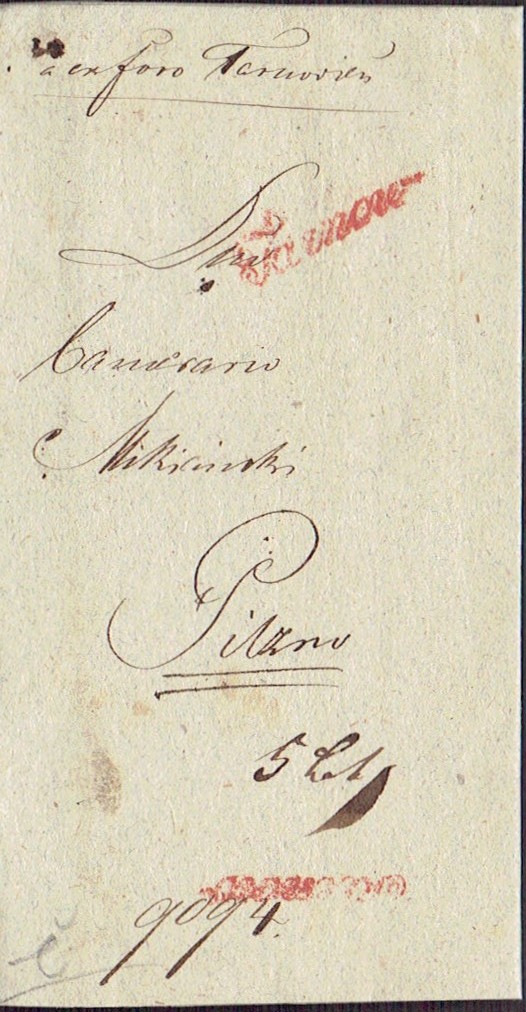 a ex foro Tarnovien
Dno
Tarnow
Camerario
Mikicinski
Pilzno
5 Lth
9094.